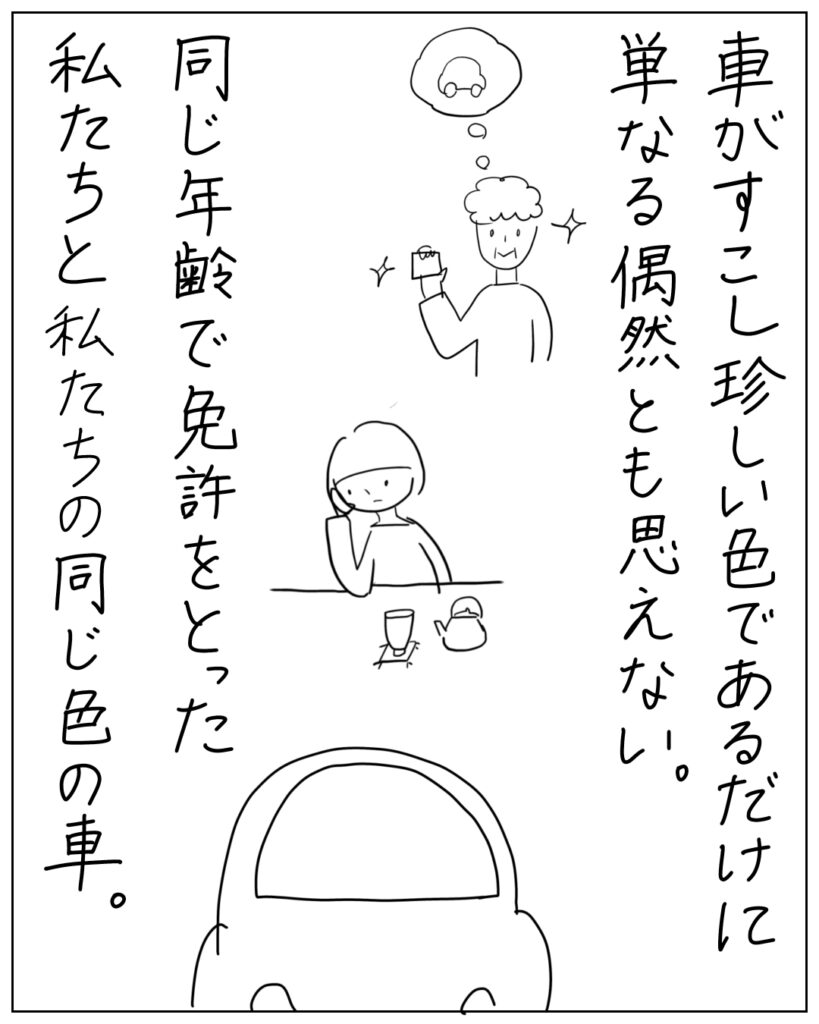 車がすこし珍しい色であるだけに
単なる偶然とも思えない。
同じ年齢で免許をとった
私たちと私たちの同じ色の車。